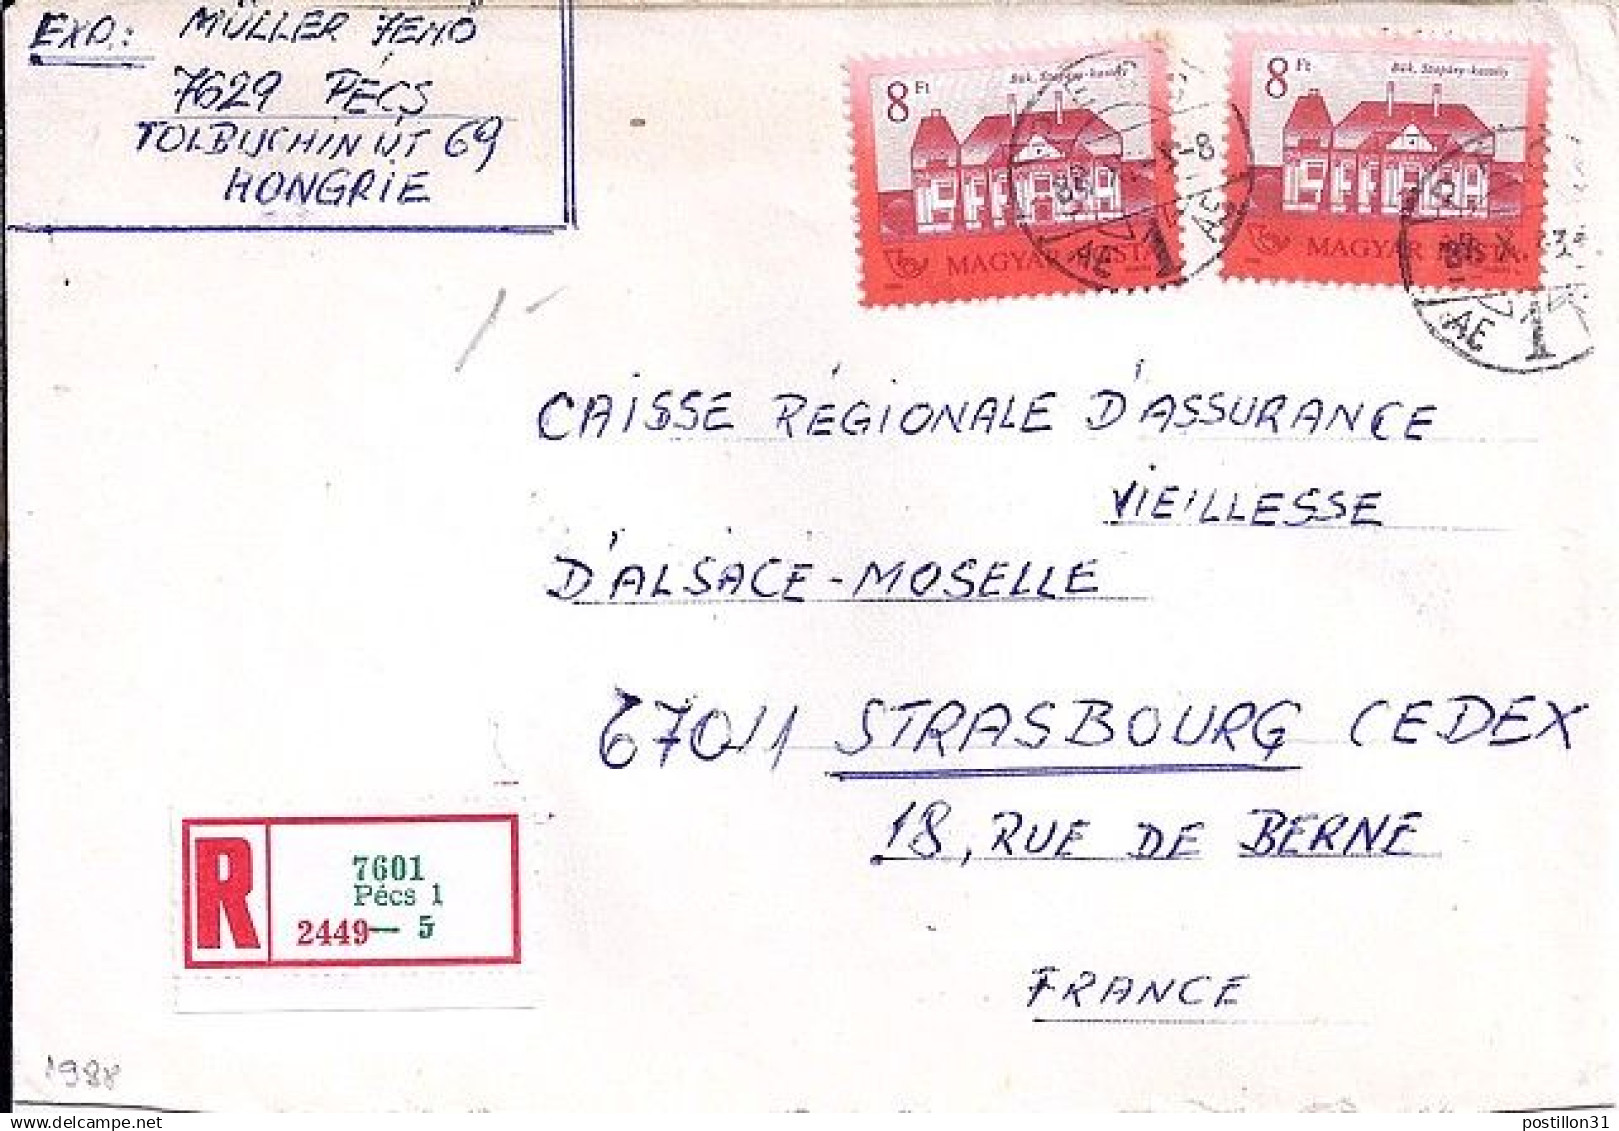 EXP.: MÜLLER JENŐ
7629 PÉCS
TOLBUCHIN ÚT 69
HONGRIE
8 Ft
Bük, Szápáry-kastély
MAGYAR POSTA
8 Ft
Bük, Szápáry-kastély
MAGYAR POSTA
AE 1
AE 1
CAISSE RÉGIONALE D'ASSURANCE
VIEILLESSE
D'ALSACE-MOSELLE
67011 STRASBOURG CEDEX
18, RUE DE BERNE
FRANCE
R
7601
Pécs 1
2449— 5
1988
delcampe.net
postillon31